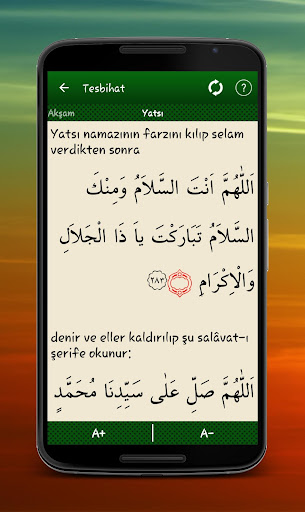 Tesbihat
?
Akşam
Yatsı
Yatsı namazının farzını kılıp selam
verdikten sonra
اَللّٰهُمَّ اَنْتَ السَّلَامُ وَمِنْكَ
السَّلَامُ تَبَارَكْتَ يَا ذَا الْجَلَالِ
وَالْاِكْرَامِ ٢٨٣
denir ve eller kaldırılıp şu salâvat-ı
şerife okunur:
اَللّٰهُمَّ صَلِّ عَلٰى سَيِّدِنَا مُحَمَّدٍ
A+
A-